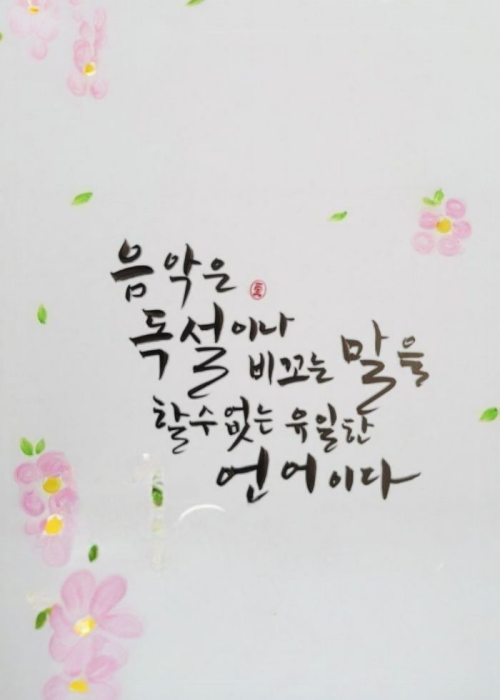 음악은
독설이나
비꼬는 말을
할 수 없는 유일한
언어이다